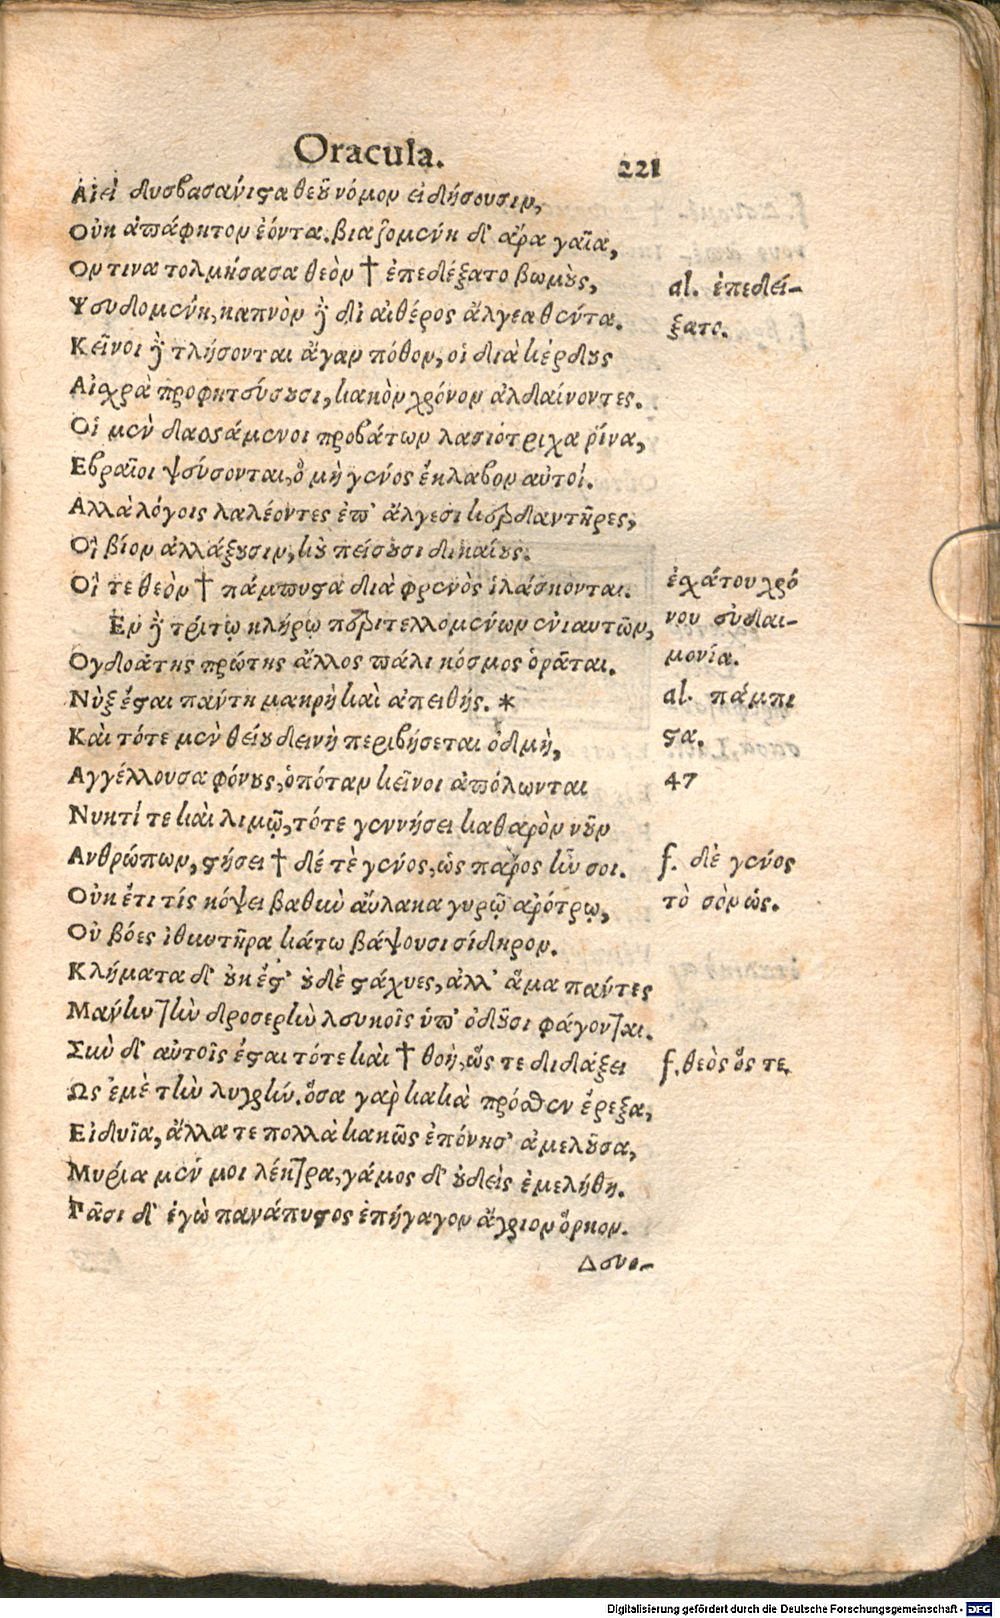 Oracula. 221
Αἰεὶ δυσβασάνιστα θεοῦ νόμον εἰδήσουσιν,
Οὐκ ἀπάφητον ἐόντα. βιαζομένη δ' ἄρα γαῖα,
Ον τινα τολμήσασα θεὸν † ἐπεδέξατο βωμοὺς,
al. ἐπεδεί-
Ψευδομένη, καπνὸν γὰρ δι αἰθέρος ἄλγεα θέντα.
ξατο.
Κεῖνοι γὰρ τλήσονται ἄγαν πόθον, οἱ διὰ κέρδους
Αἰχρὰ προφητεύσουσι, κακὸν χρόνον ἀλδαίνοντες.
Οἱ μὲν δασσάμενοι προβάτων λασιότριχα ῥίνα,
Εβραῖοι ψεύσονται, ὃ μὴ γένος ἔκλαβον αὐτοί.
Αλλὰ λόγοις λαλέοντες ἐπ' ἄλγεσι κερδαντῆρες,
Οὐ βίον ἀλλάξουσιν, κοὐ πείσουσι δικαίους.
Οἵ τε θεὸν † πάμπυστα διὰ φρενὸς ἱλάσκονται.
ἐχάτου χρό
Εν γὰρ τρίτῳ κλήρῳ περιτελλομένων ἐνιαυτῶν,
νου εὐδαι-
Ογδοάτης πρώτης ἄλλος πάλι κόσμος ὁρᾶται.
μονία.
Νὺξ ἔσται πάντη μακρὴ καὶ ἀπειθής. *
al. πάμπι
Καὶ τότε μὲν θείου δεινὴ περιβήσεται ὀδμὴ,
στα.
Αγγέλλουσα φόνους, ὁπόταν κεῖνοι ἀπόλωνται
47
Νυκτί τε καὶ λιμῷ, τότε γεννήσει καθαρὸν νοῦν
Ανθρώπων, στήσει † δέ τὲ γένος, ὡς πάρος ἦν σοι.
f. δὲ γένος
Οὐκ ἔτι τίς κόψει βαθὺν αὔλακα γυρῷ ἀρότρῳ,
τὸ σὸν ὡς.
Οὐ βόες ἰθυντῆρα κάτω βάψουσι σίδηρον.
Κλήματα δ' οὐκ ἔστ' οὐδὲ στάχυες, ἀλλ' ἅμα πάντες
Μάννην τὴν δροσερὴν λευκοῖς ὑπ' ὀδοῦσι φάγονται.
Σὺν δ' αὐτοῖς ἔσται τότε καὶ † θοὴ, ὥς τε διδάξει
f. θεὸς ὅς τε.
Ως ἐμὲ τὴν λυγρήν. ὅσα γὰρ κακὰ πρόσθεν ἔρεξα,
Εἰδυῖα, ἄλλα τε πολλὰ κακῶς ἐπόνησ' ἀμελοῦσα,
Μυρία μέν μοι λέκτρα, γάμος δ' οὐδεὶς ἐμελήθη.
Πᾶσι δ' ἐγὼ πανάπυστος ἐπήγαγον ἄγριον ὅρκον.
Δευο-
Digitalisierung gefördert durch die Deutsche Forschungsgemeinschaft - DFG